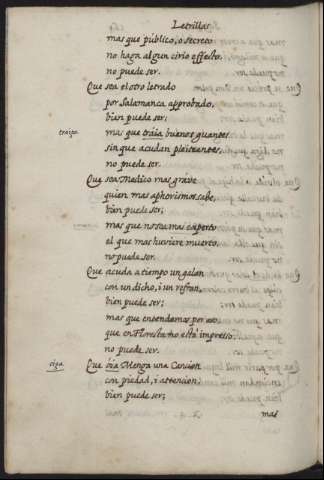 Letrillas
mas que publico, o secreto
no haga algun cirio effecto,
no puede ser.
Que sea el otro letrado
por Salamanca approbado,
bien puede ser;
traiga mas que traia buenos guantes
sin que acudan pleiteantes,
no puede ser.
Que sea Medico mas grave
quien mas aphorismos sabe,
bien puede ser;
mas que no sea mas experto
el que mas huviere muerto,
no puede ser.
Que acuda a tiempo un galan
con un dicho, i un refran,
bien puede ser;
mas que entendamos por
que en Floresta no està impresso,
no puede ser.
oiga Que oia Menga una Cancion
con piedad, i attencion;
bien puede ser;
mas